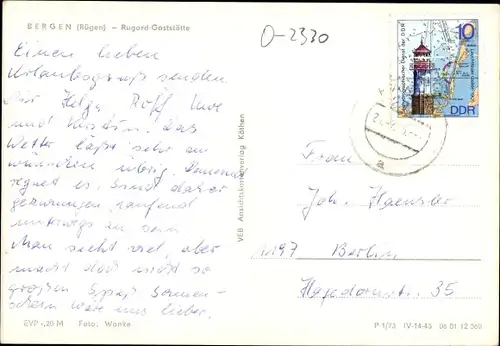 BERGEN (Rügen) – Rugard-Gaststätte
O-2330
Einen lieben
Urlaubsgruß senden
Dir Helga, Rolf, Uwe
und Kerstin. Das
Wetter läßt sehr zu
wünschen übrig. Dauernd
regnet es. Sind daher
gezwungen, laufend
unterwegs zu sein
Man sieht viel, aber
macht doch nicht so
großen Spaß. Sonnen-
schein wäre uns lieber.
EVP -,20 M Foto: Wanke
VEB Ansichtskartenverlag Köthen
10
DDR
Frau
Joh. Haensler
1197 Berlin
Hagedornstr. 35
P 1/73 IV-14-45 06 01 12 060